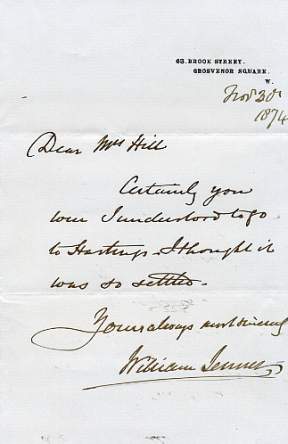 63. BROOK STREET.
GROSVENOR SQUARE.
W.
Nov 30
1874
Dear Mrs Hill
Certainly you
were I understood to go
to Hastings. I thought it
was so settled.
Yours always most sincerely
William Jenner